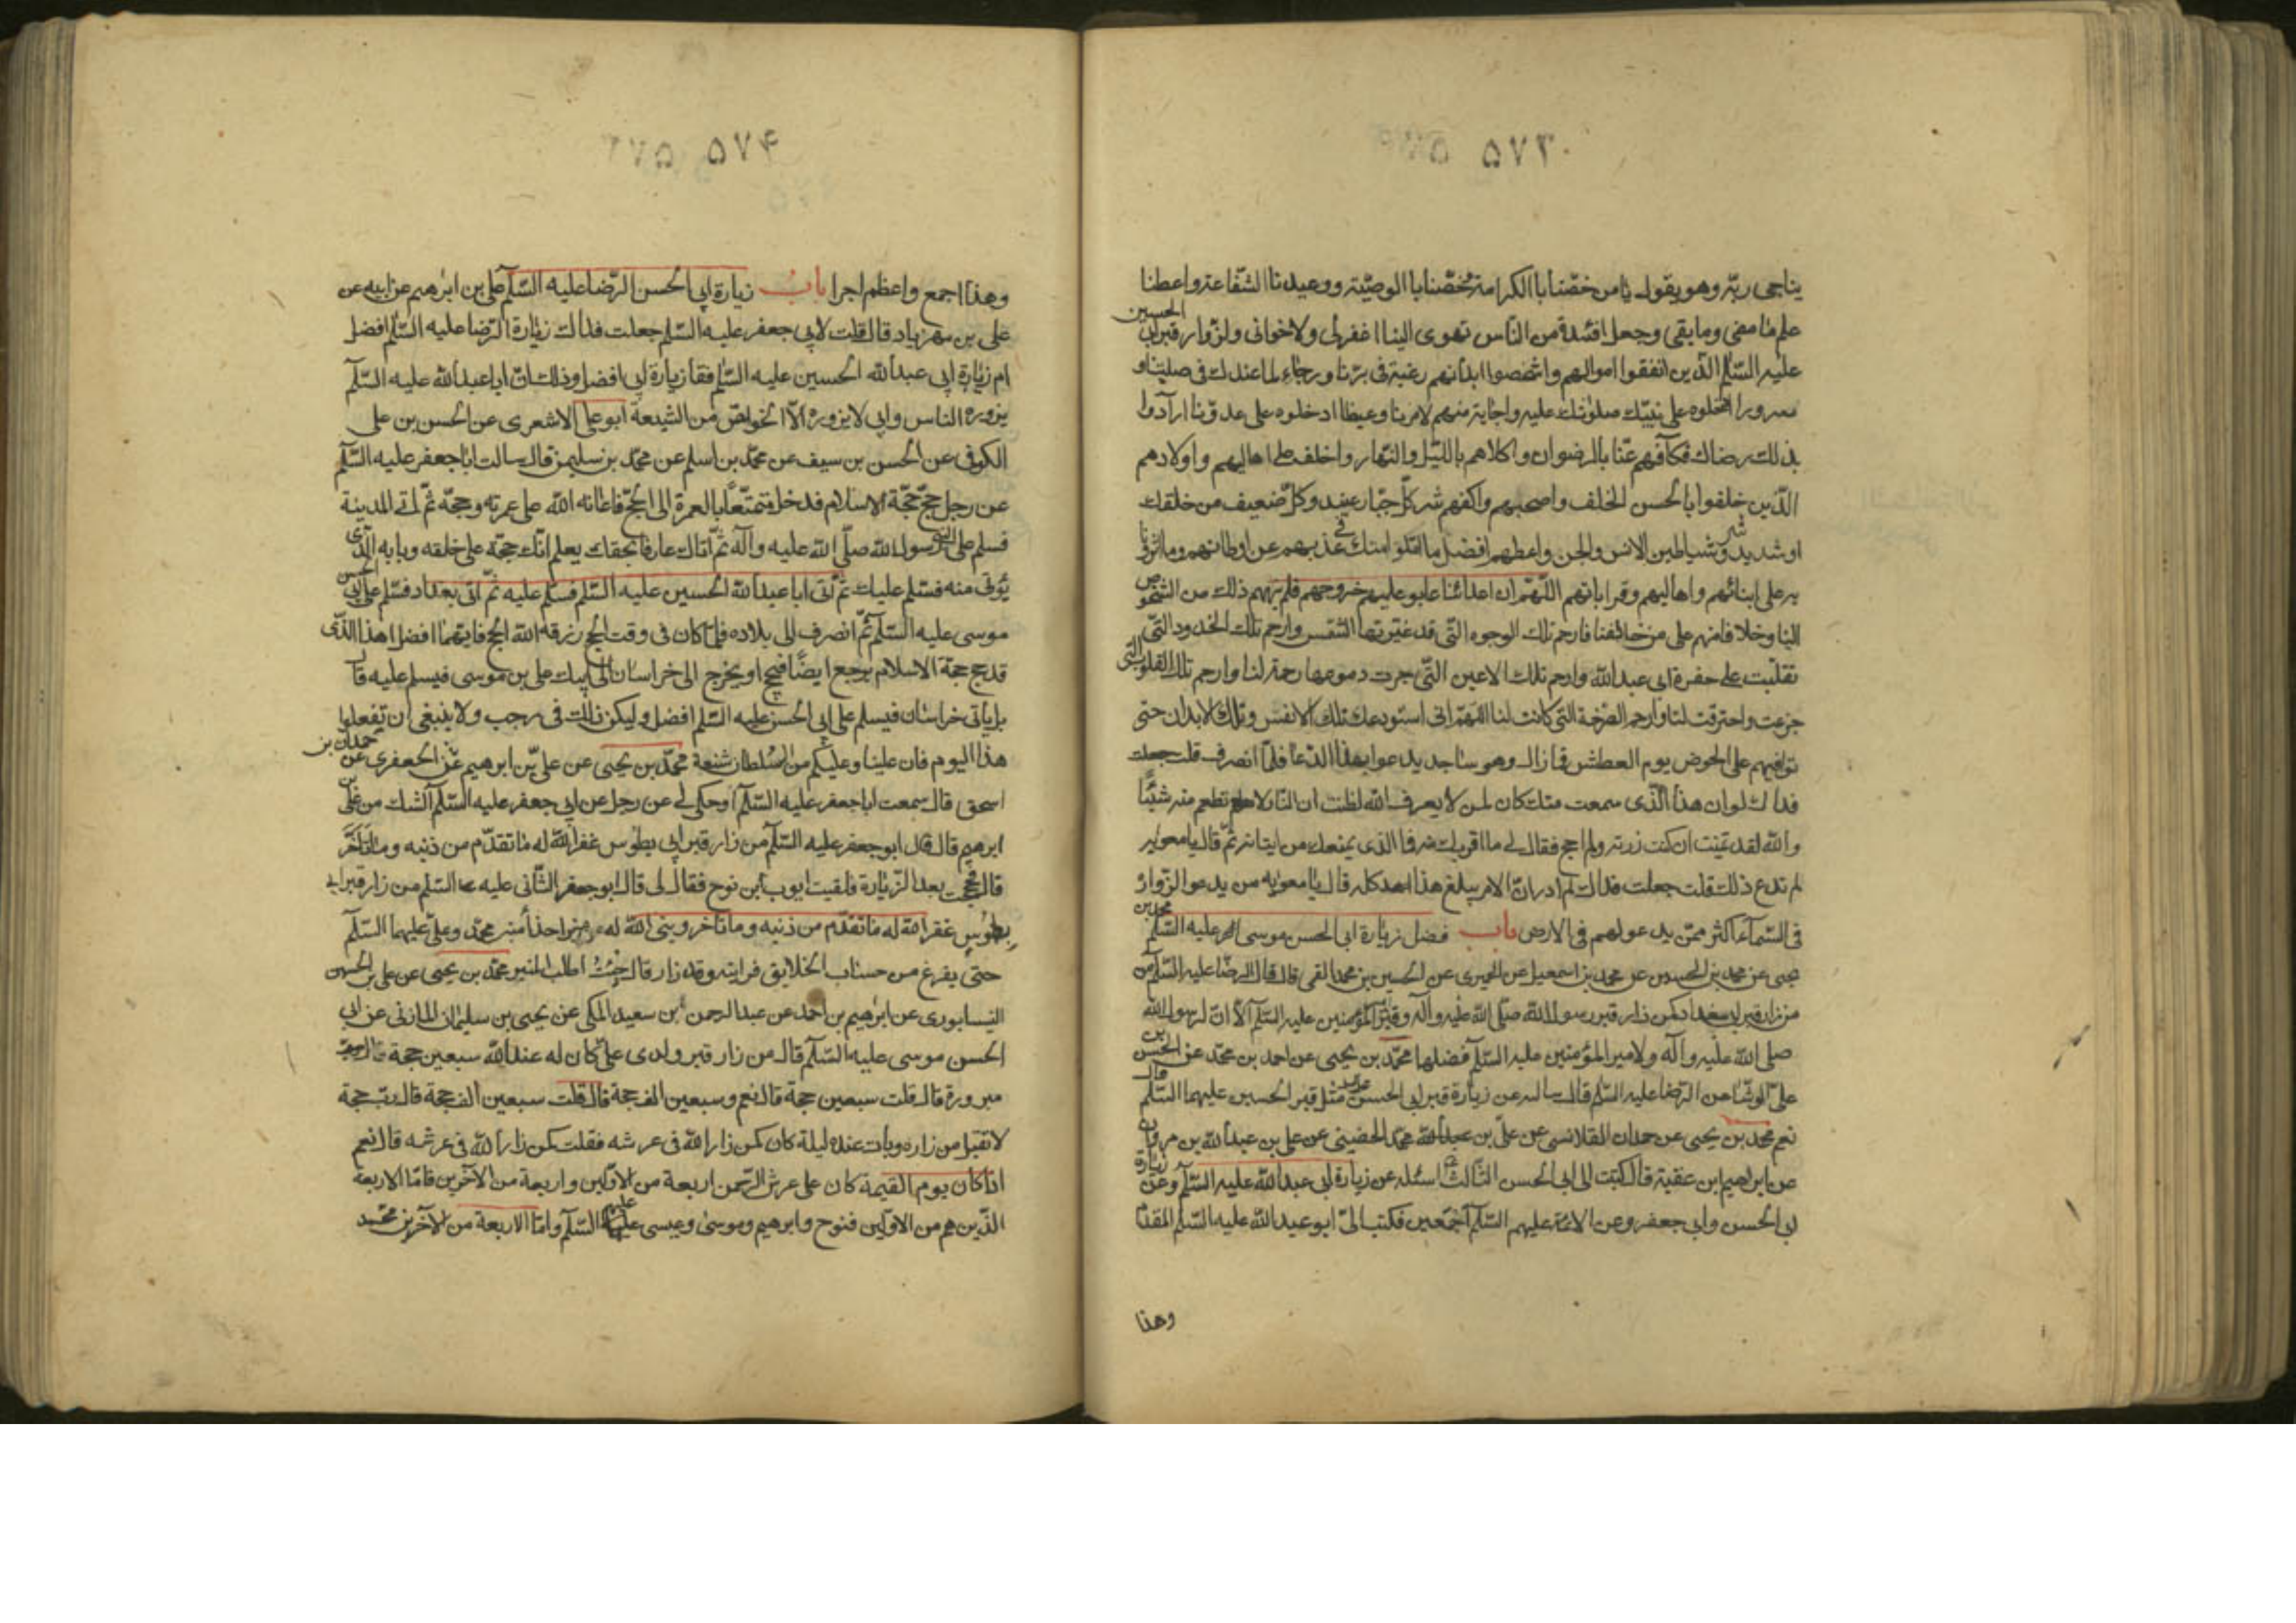 ۵۷۳
يناجى ربّه وهو يقول يا من خصّنا بالكرامة وخصّنا بالوصيّة ووعدنا الشّفاعة واعطنا
علم ما مضى وما بقى وجعل افئدة من النّاس تهوى الينا اغفر لى ولاخوانى ولزوّار قبر ابى الحسين
عليه السّلم الّذين انفقوا اموالهم واشخصوا ابدانهم رغبة فى برّنا ورجاء لما عندك فى صلتنا و
سرورا ادخلوه على نبيّك صلواتك عليه واجابة منهم لامرنا وغيظا ادخلوه على عدوّنا ارادوا
بذلك رضاك فكافهم عنّا بالرضوان واكلاهم بالليل والنّهار واخلف على اهاليهم واولادهم
الّذين خلفوا بالحسن الخلف واصحبهم واكفهم شر كلّ جبّار عنيد وكلّ ضعيف من خلقك
او شديد وشر شياطين الانس والجن واعطهم افضل ما امّلوا منك فى غربتهم عن اوطانهم وما اثرونا
به على ابنائهم واهاليهم وقراباتهم اللّهمّ ان اعدائنا عابوا عليهم خروجهم فلم ينههم ذلك من الشخوص
الينا وخلافا منهم على من خالفنا فارحم تلك الوجوه الّتى قد غيّرتها الشمس وارحم تلك الخدود الّتى
تقلّبت على حفرة ابى عبد الله وارحم تلك الاعين الّتى جرت دموعها رحمة لنا وارحم تلك القلوب الّتى
جزعت واحترقت لنا وارحم الصّرخة الّتى كانت لنا اللّهمّ انى استودعك تلك الانفس وتلك الابدان حتى
توافيهم على الحوض يوم العطش فما زال وهو ساجد يدعو بهذا الدّعا فلمّا انصرف قلت جعلت
فداك لو ان هذا الّذى سمعت منك كان لمن لا يعرف الله لظننت ان النّار لا تطعم منه شيئًا
والله لقد تمنّيت ان كنت زرته ولم احج فقال لى ما اقربك منه فما الذى يمنعك من ايتانه ثمّ قال يا معويه
لم تدع ذلك قلت جعلت فداك لم ادر انّ الامر يبلغ هذا كله قال يا معويه من يدعو لزوّاره
فى السّماء اكثر ممّن يدعو لهم فى الارض باب فضل زيارة ابى الحسن موسى عليه السّلم محمد بن
يحيى عن محمد بن الحسين عن محمد بن اسمعيل عن الخيبرى عن الحسين بن محمد القمى قال قال الرضا عليه السّلم
من زار قبر ابى ببغداد كمن زار قبر رسول الله صلّى الله عليه وآله وقبر امير المؤمنين عليه السّلم الّا انّ لرسول الله
صلى الله عليه وآله ولامير المؤمنين عليه السّلم فضلهما محمّد بن يحيى عن احمد بن محمّد عن الحسن بن
علىّ الوشّا عن الرّضا عليه السّلم قال سالته عن زيارة قبر ابى الحسن مثل قبر الحسين عليهما السّلم قال
نعم محمد بن يحيى عن حمدان القلانسى عن علىّ بن محمّد الحضينى عن على بن عبد الله بن مروان
عن ابراهيم ابن عقبة قال كتبت الى ابى الحسن الثّالث اسئله عن زيارة ابى عبد الله عليه السّلم وعن زيارة
ابى الحسن وابى جعفر وعن الائمّة عليهم السّلم اجمعين فكتب الىّ ابو عبد الله عليه السّلم المقدّم
وهذا
۵۷۴
وهذا اجمع واعظم اجرا باب زيارة ابى الحسن الرّضا عليه السّلم على بن ابرهيم عن ابيه عن
على بن مهزياد قال قلت لابى جعفر عليه السّلم جعلت فداك زيارة الرّضا عليه السّلم افضل
ام زيارة ابى عبد الله الحسين عليه السّلم فقا زيارة ابى افضل وذلك انّ ابا عبد الله عليه السّلم
يزوره النّاس وابى لا يزوره الّا الخواصّ من الشّيعة ابو على الاشعرى عن الحسن بن على
الكوفى عن الحسن بن سيف عن محمّد بن اسلم عن محمّد بن سليمن قال سالت ابا جعفر عليه السّلم
عن رجل حجّ حجّة الاسلام فدخل متمتّعًا بالعمرة الى الحجّ فاعانه الله على عمرته وحجّه ثمّ اتى المدينة
فسلم على النبى رسول الله صلّى الله عليه وآله ثمّ اتاك عارفا بحقك يعلم انّك حجّة على خلقه وبابه الّذى
يؤتى منه فسّلم عليك ثمّ اتى ابا عبد الله الحسين عليه السّلم فسلّم عليه ثمّ اتى بغداد فسّلم على ابى الحسن
موسى عليه السّلم ثمّ انصرف الى بلاده فلمّا كان فى وقت الحج رزقه الله الحج فايّهما افضل هذا الّذى
قد حج حجة الاسلام يرجع ايضًا فيحج او يخرج الى خراسان الى ابيك على بن موسى فيسلم عليه قا
بل ياتى خراسان فيسلم على ابى الحسن عليه السّلم افضل وليكن ذلك فى رجب ولا ينبغى ان تفعلوا
هذا اليوم فان علينا وعليكم من السّلطان شنعة محمّد بن يحيى عن علىّ بن ابرهيم عن الجعفرى عن حمدان بن
اسحق قال سمعت ابا جعفر عليه السّلم او حكى لى عن رجل عن ابى جعفر عليه السّلم الشك من على بن
ابرهيم قال قال ابو جعفر عليه السّلم من زار قبر ابى بطوس غفر الله له ما تقدّم من ذنبه وما تاخّر
قال فحججت بعد الزّيارة فلقيت ايوب ابن نوح فقال لى قال ابو جعفر الثّانى عليه السّلم من زار قبر ابى
بطوس غفر الله له ما تقدّم من ذنبه وما تاخّر وبنى الله له منبرا حذا منبر محمّد وعلىّ عليهما السّلم
حتّى يفرغ من حساب الخلايق فرايته وقد زار قال جئت اطلب المنبر محمّد بن يحيى عن على بن الحسين
النيسابورى عن ابرهيم بن احمد عن عبد الرحمن ابن سعيد المكى عن يحيى بن سليمان المازنى عن ابى
الحسن موسى عليه السّلم قال من زار قبر ولدى علىّ كان له عند الله سبعين حجة
مبرورة قال قلت سبعين حجة قال نعم وسبعين الف حجة قال قلت سبعين الف حجة قال ربّ حجة
لا تقبل من زاره وبات عنده ليلة كان كمن زار الله فى عرشه فقلت كمن زار الله فى عرشه قال نعم
اذا كان يوم القيمة كان على عرش الرّحمن اربعة من الاوّلين واربعة من الآخرين فامّا الاربعة
الّذين هم من الاوّلين فنوح وابرهيم وموسى وعيسى عليهم السّلم وامّا الاربعة من الآخرين محمّد